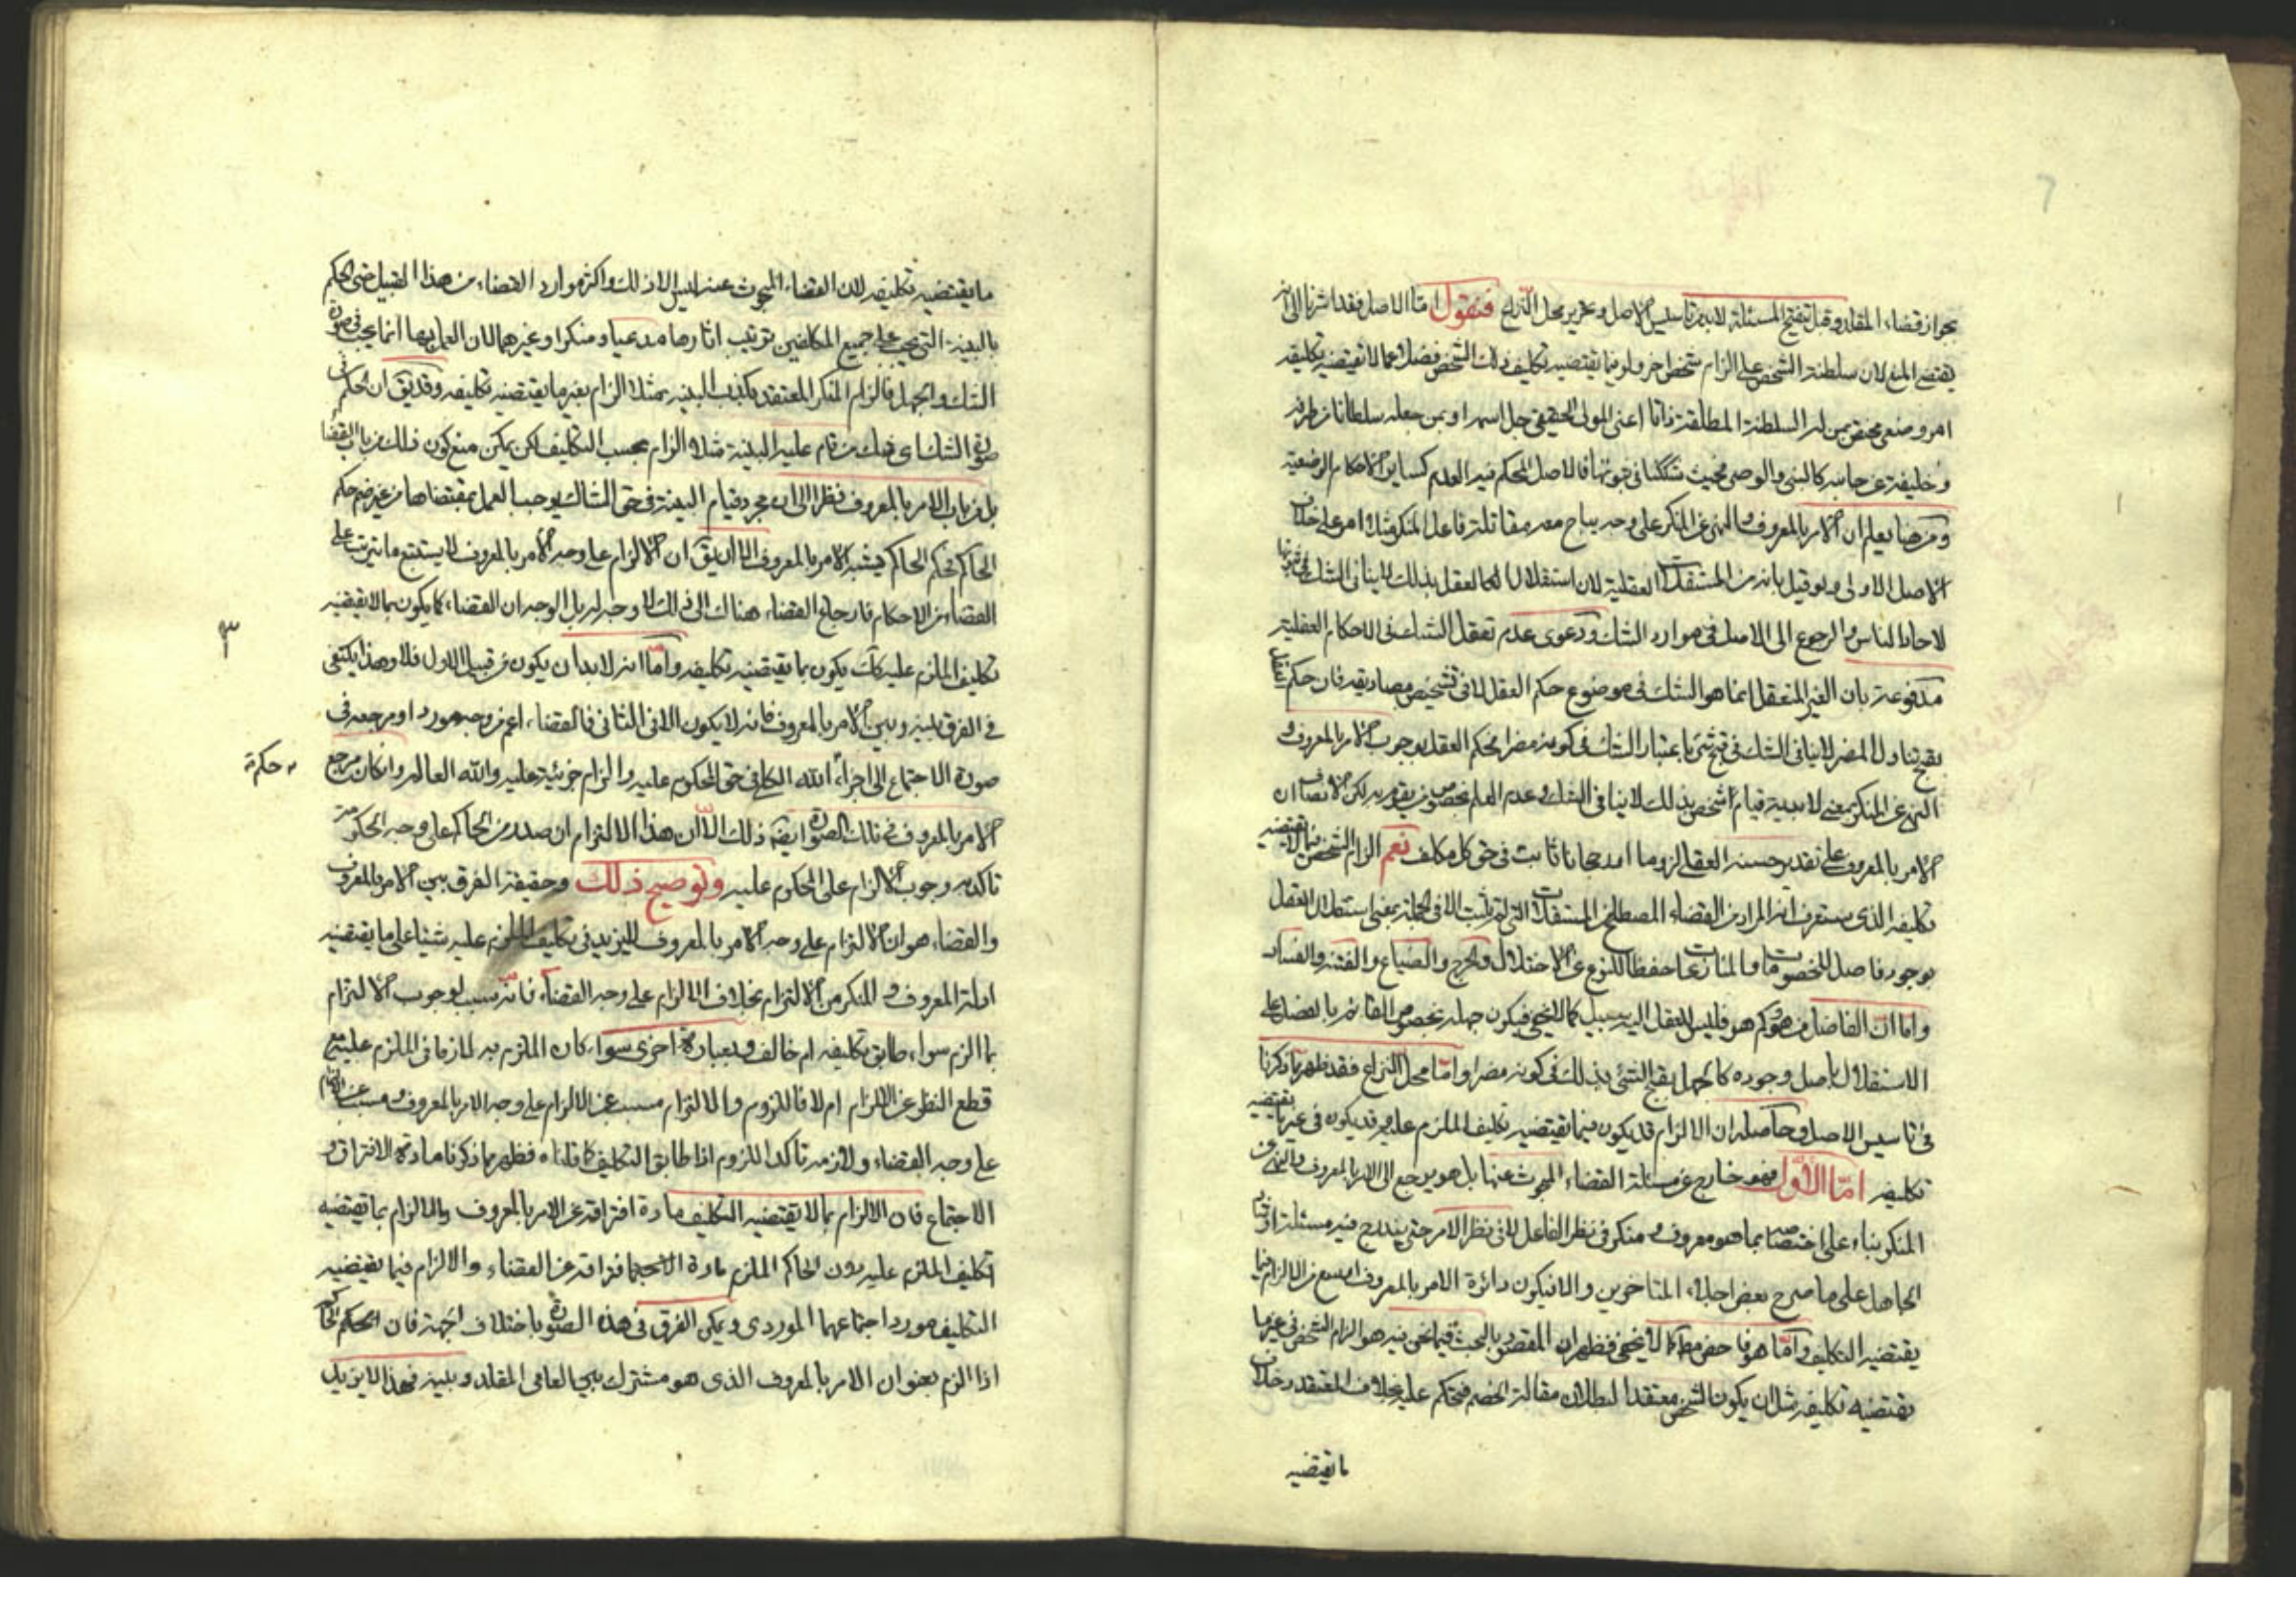 بجواز قضاء المقلد وقبل تنقيح المسئلة لابد من تاسيس الاصل وتحرير محل النزاع فنقول امّا الاصل فقد اشرنا الى انه
يقتضى المنع لان سلطنة الشخص على الزام شخص اخر ولو فيما يقتضيه تكليف ذلك الشخص فضلا عما لا يقتضيه تكليفه
امر وضعى مختص بمن له السلطنة المطلقة ذاتا اعنى المولى الحقيقى جل اسمه او بمن جعله سلطانا من طرفه
وخليفة عن جانبه كالنبى والوصى فحيث شككنا فى ثبوتها فالاصل المحكم فيه العدم كساير الاحكام الوضعية
ومن هنا يعلم ان الامر بالمعروف والنهى عن المنكر على وجه يباح معه مقاتلة فاعل المنكر مثلا امر على خلاف
الاصل الاولى ولو قيل بانه من المستقلات العقلية لان استقلال العقل بذلك لا ينافى الشك فى ثبوتها
لاحاد الناس والرجوع الى الاصل فى موارد الشك ودعوى عدم تعقل الشك فى الاحكام العقلية
مدفوعة بان الغير المتعقل انما هو الشك فى موضوع حكم العقل لا فى تشخيص مصاديقه فان حكم العقل
بقبح تناول المضر لا ينافى الشك فى قبح شئ باعتبار الشك فى كونه مضرا فحكم العقل بوجوب الامر بالمعروف و
النهى عن المنكر بمعنى لابدية قيام شخص بذلك لا ينافى الشك وعدم العلم بخصوص من يقوم به لكن الانصاف ان
الامر بالمعروف على تقدير حسنه العقلى لزوما او رجحانا ثابت فى حق كل مكلف نعم الزام الشخص بما لا يقتضيه
تكليفه الذى ستعرف انه المراد من القضاء المصطلح من المستقلات التى لم يثبت الا فى الجملة بمعنى استقلال العقل
بوجود فاصل للخصومات والمنازعات حفظا للنوع عن الاختلال والحرج والضياع والفتنة والفساد
واما ان الفاصل من هو وكم هو فليس للعقل اليه سبيل كما لا يخفى فيكون جهله بخصوص القائم بالفصل على
الاستقلال باصل وجوده كالجهل بقبح الشئ بذلك فى كونه مضرا وامّا محل النزاع فقد ظهر مما ذكرنا
فى تاسيس الاصل وحاصله ان الالزام قد يكون فيما يقتضيه تكليف الملزم عليه وقد يكون فى غير ما يقتضيه
تكليفه امّا الاوّل فهو خارج عن مسئلة القضاء المبحوث عنها بل هو يرجع الى الامر بالمعروف والنهى عن
المنكر بناء على اختصاصه بما هو معروف ومنكر فى نظر الفاعل لا فى نظر الامر حتى يندرج فيه مسئلة ارشاد
الجاهل على ما صرح بعض اجلاء المتاخرين والا فيكون دائرة الامر بالمعروف اوسع من الالزام فيما
يقتضيه التكليف وامّا هو فاخص مطلقا كما لا يخفى فظهر ان المقصود بالبحث فيما نحن فيه هو الزام الشخص فى غير ما
يقتضيه تكليفه مثل ان يكون الشخص معتقدا لبطلان مقالة الخصم فيحكم عليه بخلاف المعتقد وخلاف
ما يقتضيه
ما يقتضيه تكليفه لان القضاء المبحوث عنه ليس الا ذلك واكثر موارد القضاء من هذا القبيل حتى الحكم
بالبينة التى يجب على جميع المكلفين ترتيب اثارها مدعيا ومنكرا وغيرهما لان العمل بها انما يجب فى صورة
الشك والجهل فالزام المنكر المعتقد بكذب البينة مثلا الزام بغير ما يقتضيه تكليفه وقد يق ان الحكم فى
صورة الشك اى شك من قام عليه البينة مثلا الزام بحسب التكليف لكن يمكن منع كون ذلك من باب القضا
بل من باب الامر بالمعروف نظرا الى ان مجرد قيام البينة فى حق الشاك يوجب العمل بمقتضاها من غير ضم حكم
الحاكم فحكم الحاكم يشبه الامر بالمعروف الا ان يق ان الالزام على وجه الامر بالمعروف لا يستتبع ما يترتب على
القضاء من الاحكام فارجاع القضاء هناك الى ذلك لا وجه له بل الوجه ان القضاء كما يكون بما لا يقتضيه
تكليف الملزم عليه كك يكون بما يقتضيه تكليفه وامّا انه لابد ان يكون من قبيل الاول فلا وهذا يكتفى
فى الفرق بينه وبين الامر بالمعروف فانه لا يكون الا فى الثانى فالقضاء اعم من وجه موردا ومرجعه فى
صورة الاجتماع الى اجراء حكم الله الكلى فى حق المحكوم عليه والزام جزئية عليه والله العالم وان كان مرجع
الامر بالمعروف فى تلك الصورة ايضا ذلك الا ان هذا الالزام ان صدر من الحاكم على وجه الحكومة
تاكد به وجوب الالزام على المحكوم عليه وتوضيح ذلك وحقيقة الفرق بين الامر بالمعروف
والقضاء هو ان الالزام على وجه الامر بالمعروف لا يزيد فى تكليف الملزم عليه شيئا على ما يقتضيه
ادلة المعروف والمنكر من الالتزام بخلاف الالزام على وجه القضاء فانه سبب لوجوب الالتزام
بما الزم سواء طابق تكليفه ام خالف وبعبارة اخرى سواء كان الملزم به لازما فى الملزم عليه مع
قطع النظر عن الالزام ام لا فاللزوم والالتزام مسبب عنه الالزام على وجه الامر بالمعروف ومسبب عن الالزام
على وجه القضاء ولازمه تاكد اللزوم اذا طابق التكليف كما قلناه فظهر مما ذكرنا مادة الافتراق و
الاجتماع فان الالزام بما لا يقتضيه التكليف مادة افتراقه عن الامر بالمعروف والالزام بما يقتضيه
تكليف الملزم عليه دون الحاكم الملزم مادة افتراقه عن القضاء والالزام فيما يقتضيه
التكليف مورد اجتماعهما الموردى ويمكن الفرق فى هذه الصورة باختلاف الجهة فان الحكم الحاكم
اذا الزم بعنوان الامر بالمعروف الذى هو مشترك بين العامى المقلد وبينه فهذا لا يزيد
٣
حكمه